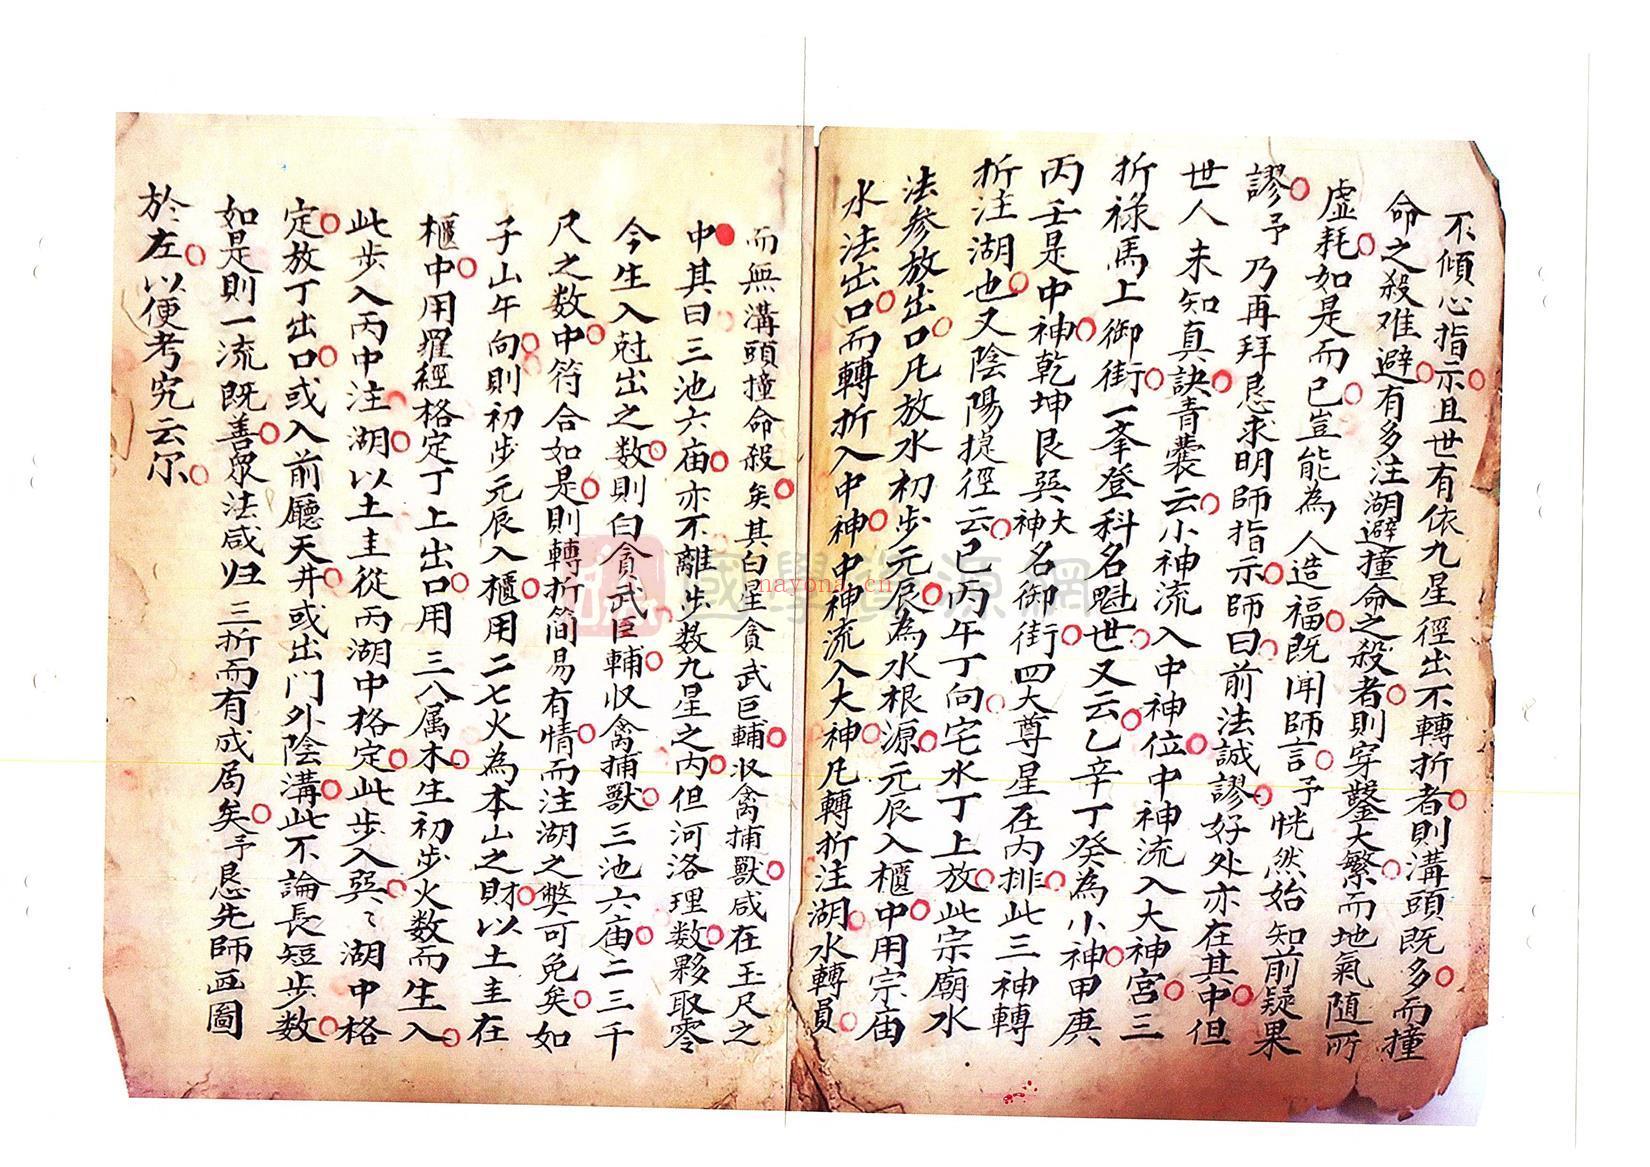 不傾心指示且世有依九星徑出不轉折者則溝頭既多而撞
命之殺难避有多注湖避撞命之殺者則穿鑿大繁而地氣随所
虛耗如是而已豈能為人造福既聞師言予恍然始知前疑果
謬予乃再拜恳求明師指示師曰前法誠謬好处亦在其中但
世人未知真訣青囊云小神流入中神位中神流入大神宮三
折祿馬上御街一峯登科名魁世又云乙辛丁癸為小神甲庚
丙壬是中神乾坤艮巽大神名御街四大尊星在内排此三神轉
折注湖也又陰陽捷徑云巳丙午丁向宅水丁上放此宗廟水
法参放出口凡放水初步元辰為水根源元辰入櫃中用宗庙
水法出口而轉折入中神中神流入大神凡轉折注湖水轉員
而無溝頭撞命殺矣其白星貪武巨輔収禽捕獸咸在玉尺之
中其曰三池六庙亦不離步数九星之内但河洛理数夥取零
今生入尅出之数則白貪武巨輔収禽捕獸三池六庙二三千
尺之数中符合如是則轉折简易有情而注湖之弊可免矣如
子山午向則初步元辰入櫃用二七火為本山之財以土圭在
櫃中用羅經格定丁上出口用三八属木生初步火数而生入
此步入丙中注湖以土圭從丙湖中格定此步入巽〻湖中格
定放丁出口或入前廳天井或出门外陰溝此不論長短步数
如是則一流既善眾法咸归三折而有成局矣予恳先師画圖
於左以便考究云尔
國學資源網
nayona.cn